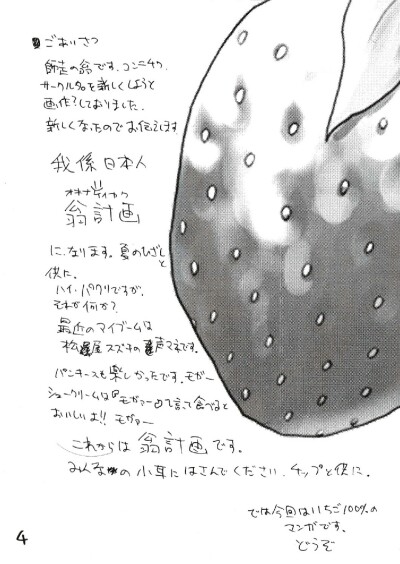 ごあいさつ
師走の翁です。コンニチワ
サークル名を新しくしようと
画作?しておりました。
新しくなったのでお伝えします
我係日本人
オキナケイカク
翁計画
に、なります。夏のひざしと
供に。
ハイ、パクリですが、
それが何か?
最近のマイブームは
松尾スズキの声マネです。
パンチースも楽しかったです。モガー
シュークリームは『モガァー』って言って食べると
おいしいよ!! モガァー
これからは翁計画です。
みんなの小耳にはさんでください、チップと供に。
では今回はいちご100%の
マンガです。
どうぞ
4